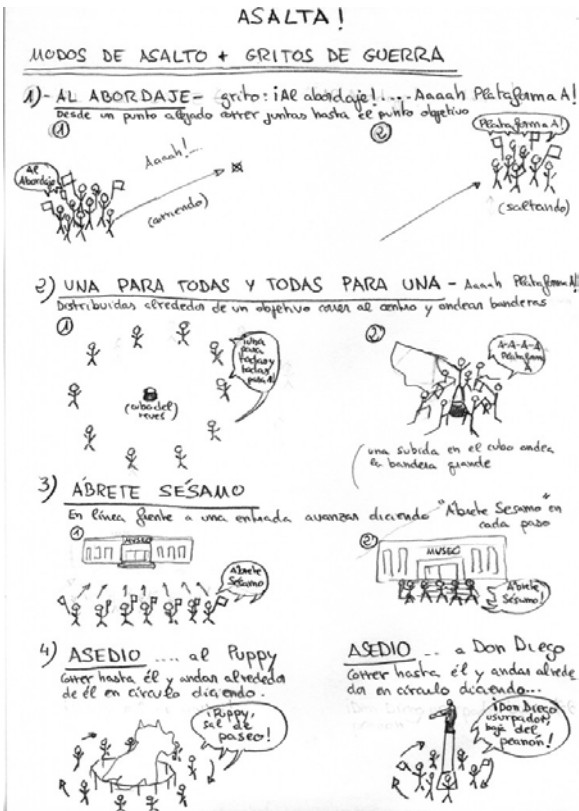 ASALTA!
MODOS DE ASALTO + GRITOS DE GUERRA
1)- AL ABORDAJE - grito: ¡Al abordaje! .... Aaaah Plataforma A!
Desde un punto alejado correr juntas hasta el punto objetivo
①
②
Al Abordaje
Aaaah!...
(corriendo)
Plataforma A!
(saltando)
2) UNA PARA TODAS Y TODAS PARA UNA - Aaaah Plataforma A!!
Distribuidas alrededor de un objetivo correr al centro y ondear banderas
①
¡una
para
todas y
todas
para 1!
(cubo del
revés)
②
A-A-A-A
Plataforma
A
una subida en el cubo ondea
la bandera grande
3) ÁBRETE SÉSAMO
En línea frente a una entrada avanzar diciendo "Ábrete Sésamo" en
cada paso
①
MUSEO
Ábrete
Sésamo
②
MUSEO
Ábrete
Sésamo!
4) ASEDIO .... al Puppy
Correr hasta él y andar alrededor
de él en círculo diciendo.
¡Puppy,
sal de
paseo!
ASEDIO ... a Don Diego
Correr hasta él y andar alrede
dor en círculo diciendo...
¡Don Diego
usurpador,
baja del
peanón!